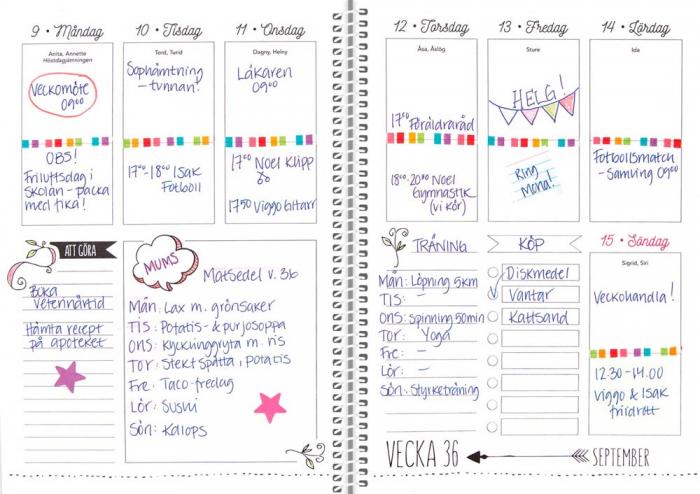 9 • Måndag
Anita, Annette
Höstdagjämningen
Veckomöte
09⁰⁰
OBS!
Friluftsdag i
skolan - packa
med fika!
10 • Tisdag
Tord, Turid
Sophämtning
- tunnan!
17⁰⁰-18⁰⁰ Isak
Fotboll
11 • Onsdag
Dagny, Helny
Läkaren
09⁰⁰
17⁰⁰ Noel Klipp
17⁵⁰ Viggo Gitarr
ATT GÖRA
Boka
veterinärtid
Hämta recept
på apoteket
MUMS
Matsedel v. 36
Mån: Lax m. grönsaker
Tis: Potatis- & purjosoppa
Ons: Kycklinggryta m. ris
Tor: Stekt spätta, potatis
Fre: Taco-fredag
Lör: Sushi
Sön: Kalops
12 • Torsdag
Åsa, Åslög
17³⁰ Föräldraråd
18⁰⁰-20⁰⁰ Noel
Gymnastik
(vi kör)
13 • Fredag
Sture
HELG!
Ring
Mona!
14 • Lördag
Ida
Fotbollsmatch
- Samling 09⁰⁰
TRÄNING
Mån: Löpning 5km
Tis: -
Ons: Spinning 50min
Tor: Yoga
Fre: -
Lör: -
Sön: Styrketräning
KÖP
Diskmedel
Vantar
Kattsand
15 • Söndag
Sigrid, Siri
Veckohandla!
12.30-14.00
Viggo & Isak
friidrott
VECKA 36
SEPTEMBER